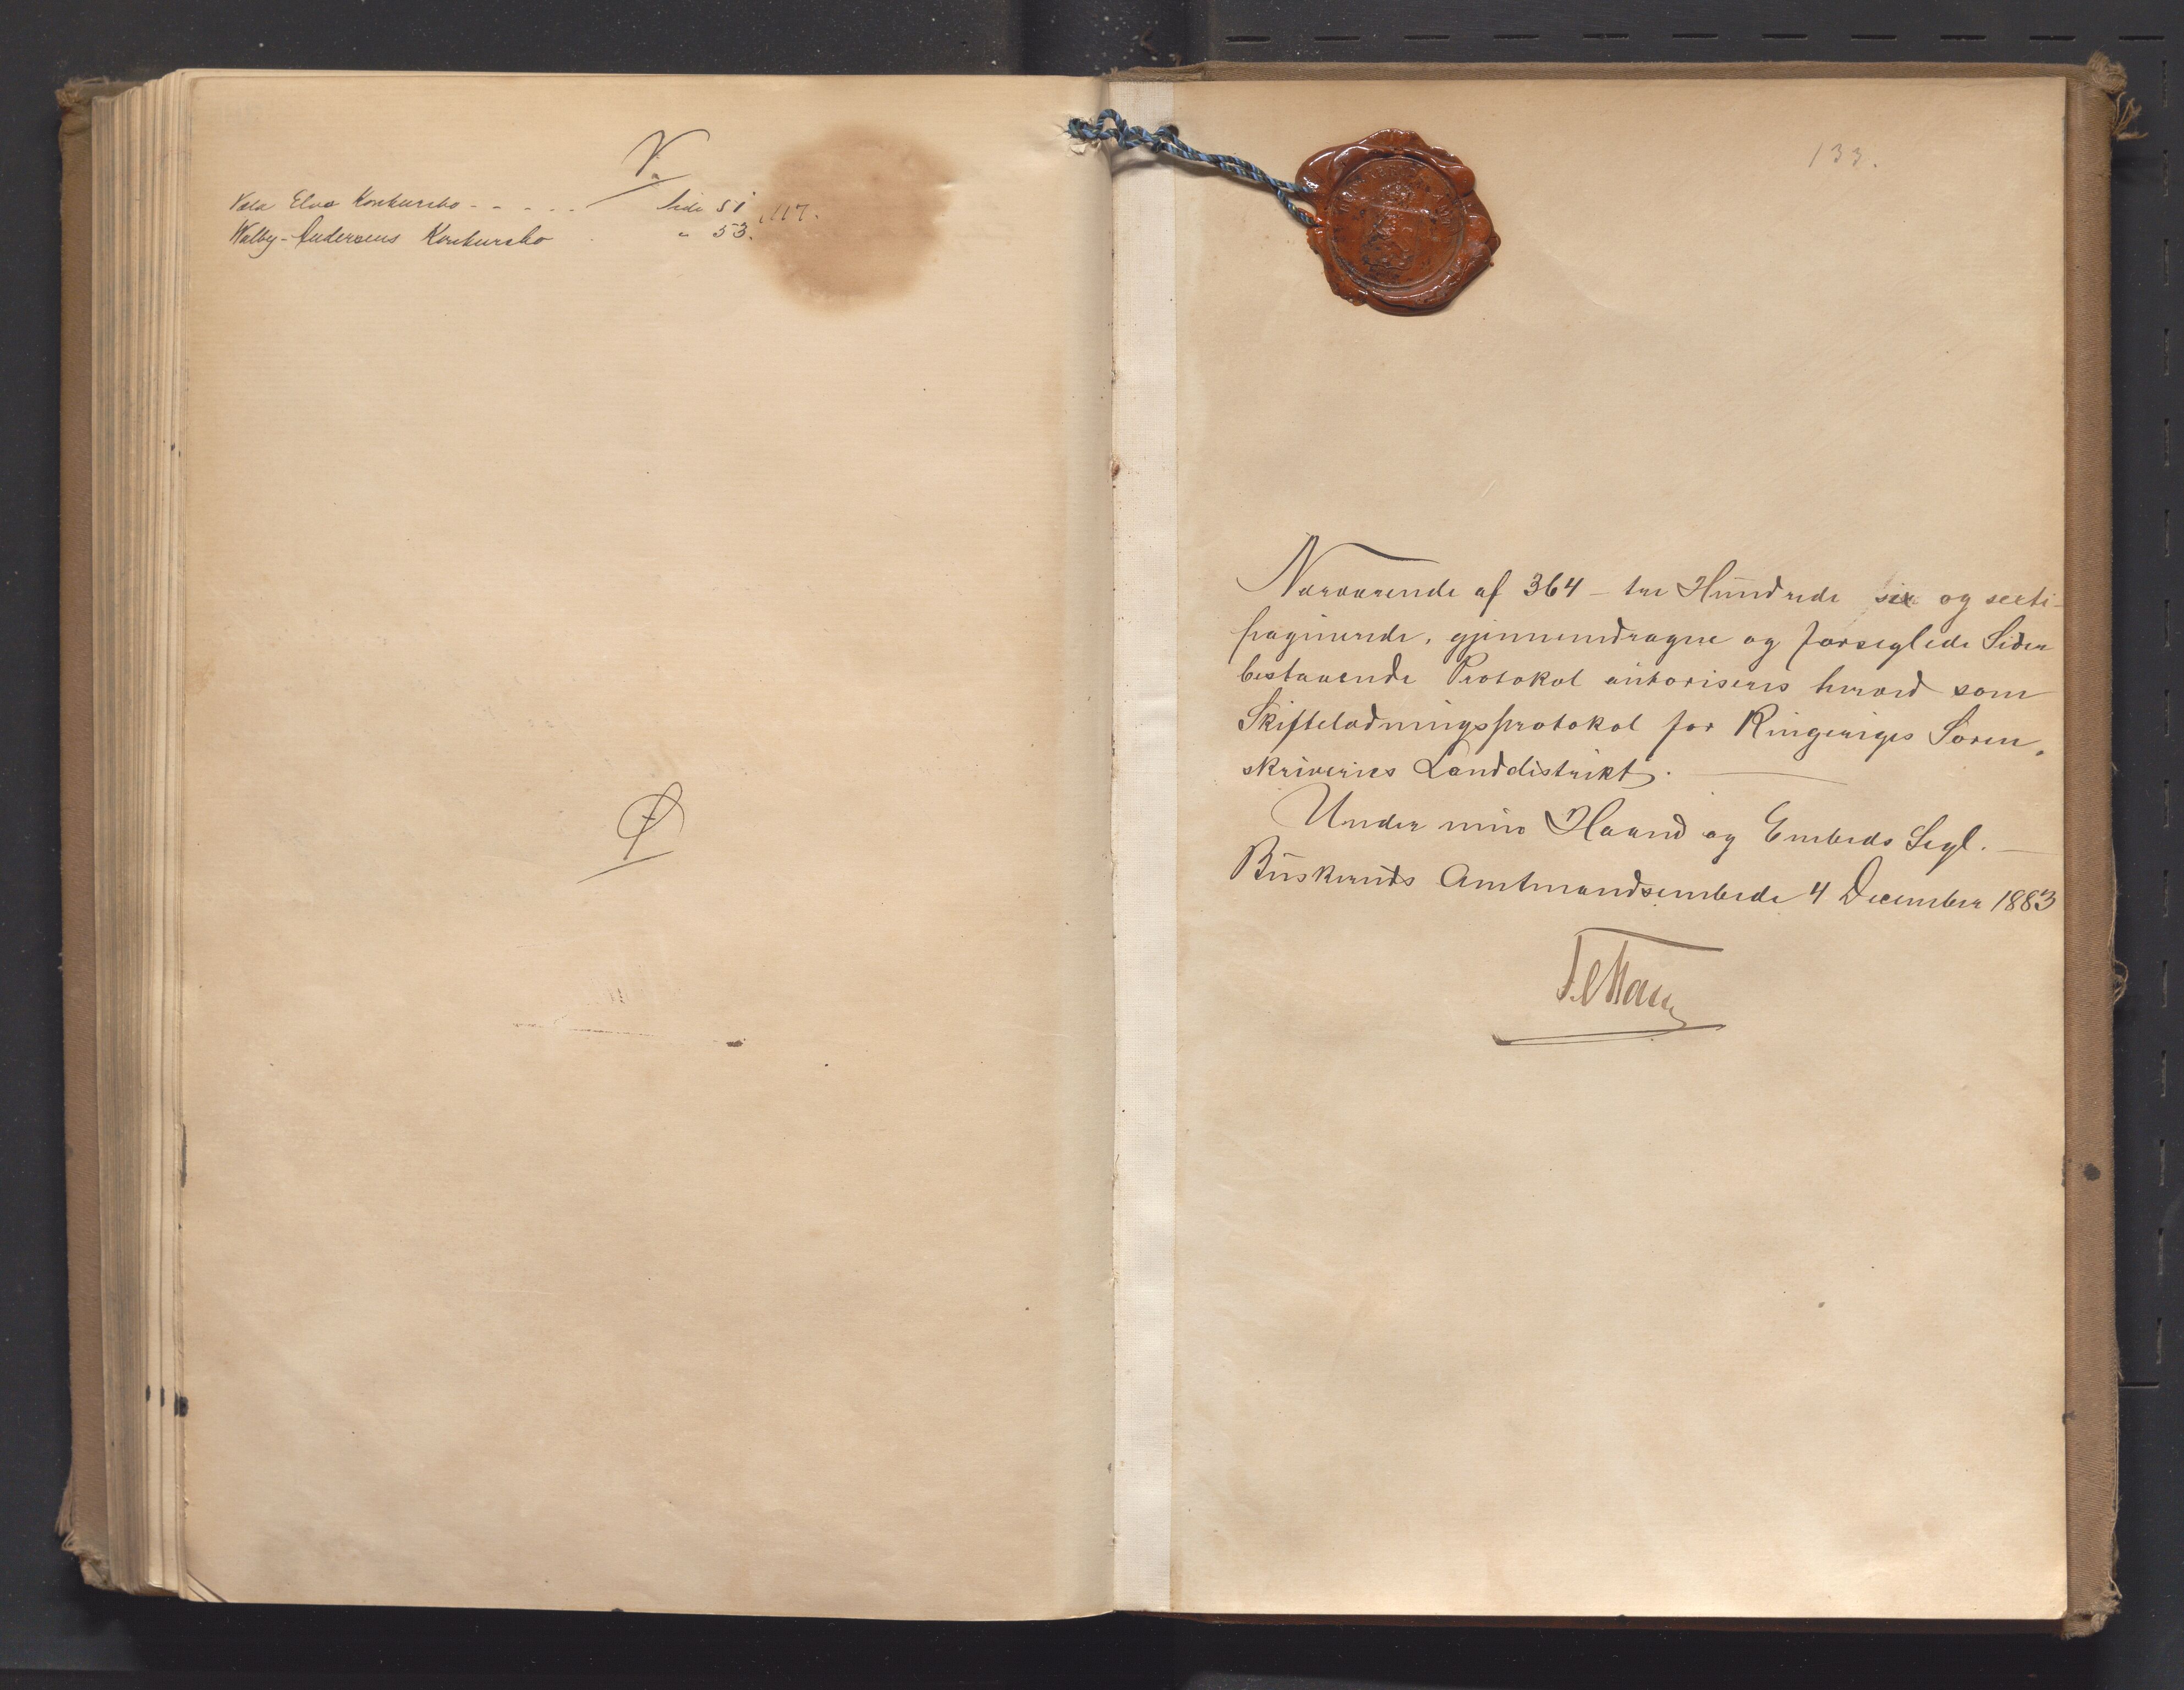 V.
Vala Elvs Konkursbo - - - - - Side 51, 117.
Walby-Andersens Konkursbo " 53.
Ø
133.
Nærværende af 364 - tre Hundrede sex og sexti-
paginerede, gjennemdragne og forseglede Sider
bestaaende Protokol autoriseres herved som
Skifteladningsprotokol for Ringeriges Soren-
skriveries Landdistrikt.
Under min Haand og Embeds Segl.
Buskeruds Amtmandsembede 4 December 1883